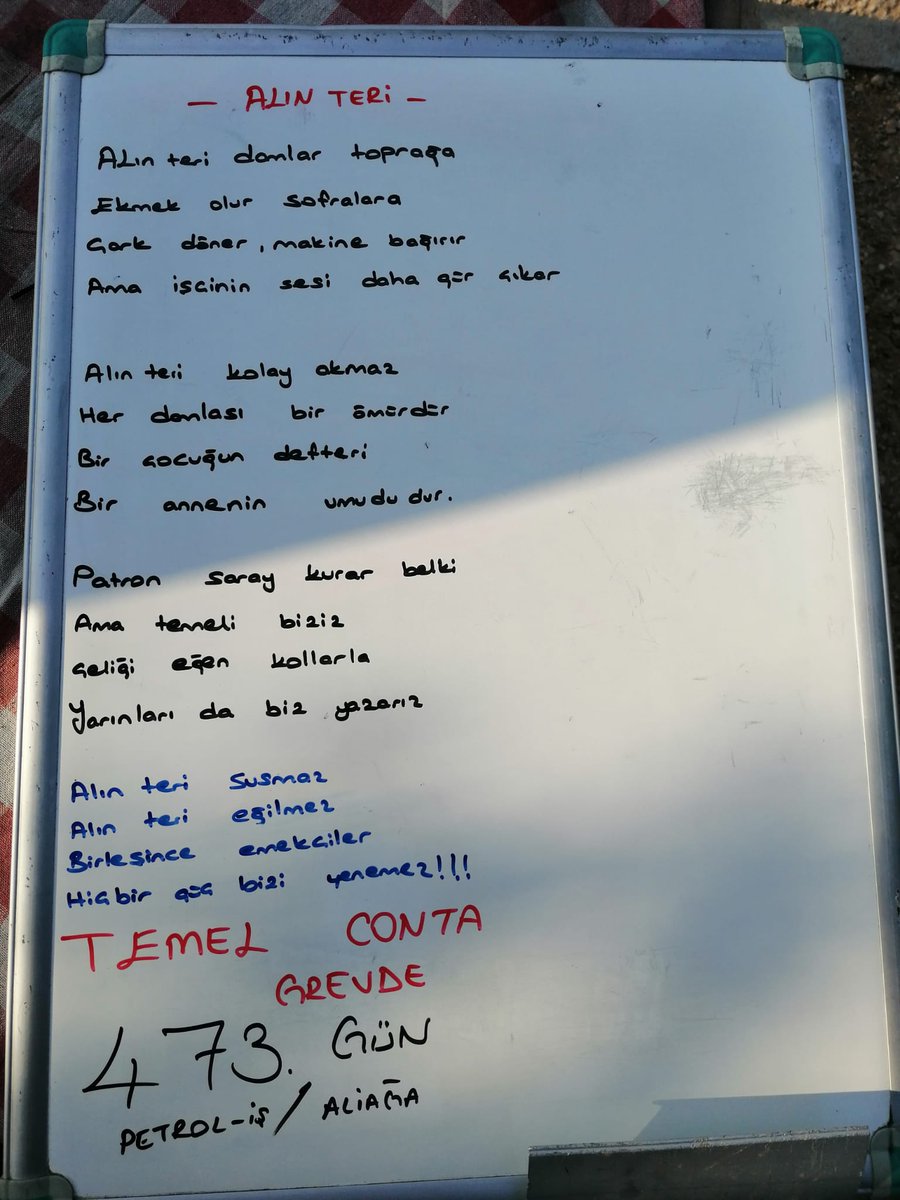 - ALIN TERİ -
Alın teri damlar toprağa
Ekmek olur sofralara
Çark döner, makine bağırır
Ama işçinin sesi daha gür çıkar
Alın teri kolay akmaz
Her damlası bir ömürdür
Bir çocuğun defteri
Bir annenin umududur.
Patron saray kurar belki
Ama temeli biziz
Çeliği eğen kollarla
Yarınları da biz yazarız
Alın teri susmaz
Alın teri eğilmez
Birleşince emekçiler
Hiçbir güç bizi yenemez!!!
TEMEL CONTA
GREVDE
473. GÜN
PETROL-İŞ / ALİAĞA